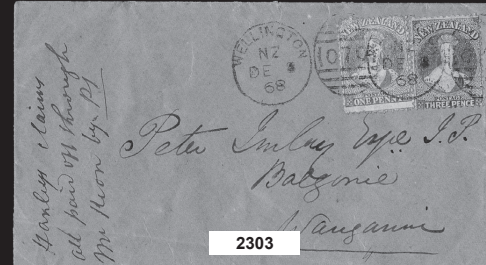 Hanleys claims
all paid off through
Mr Keon by PJ
WELLINGTON
NZ
DE
68
NEW ZEALAND
ONE PENNY
NEW ZEALAND
THREE PENCE
DE
68
Peter Imlay Esqe J.P.
Balgonie
Wanganui
2303